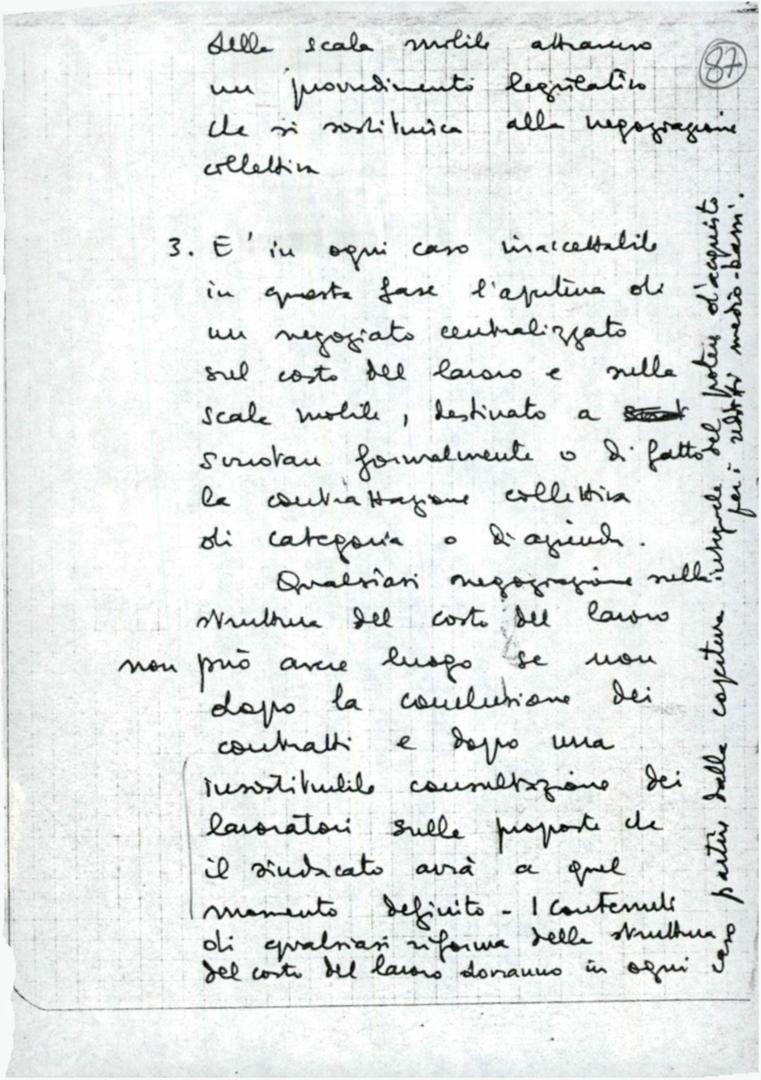 87
della scala mobile attraverso
un provvedimento legislativo
che si sostituisca alla negoziazione
collettiva
3. E' in ogni caso inaccettabile
in questa fase l'apertura di
un negoziato centralizzato
sul costo del lavoro e sulla
scala mobile, destinato a
svuotare formalmente o di fatto
la contrattazione collettiva
di categoria o di azienda.
Qualsiasi negoziazione sulla
struttura del costo del lavoro
non può avere luogo se non
dopo la conclusione dei
contratti e dopo una
insostituibile consultazione dei
lavoratori sulle proposte che
il sindacato avrà a quel
momento definito - I contenuti
di qualsiasi riforma della struttura
del costo del lavoro dovranno in ogni
caso partire dalla copertura integrale del potere d'acquisto
per i redditi medio-bassi.